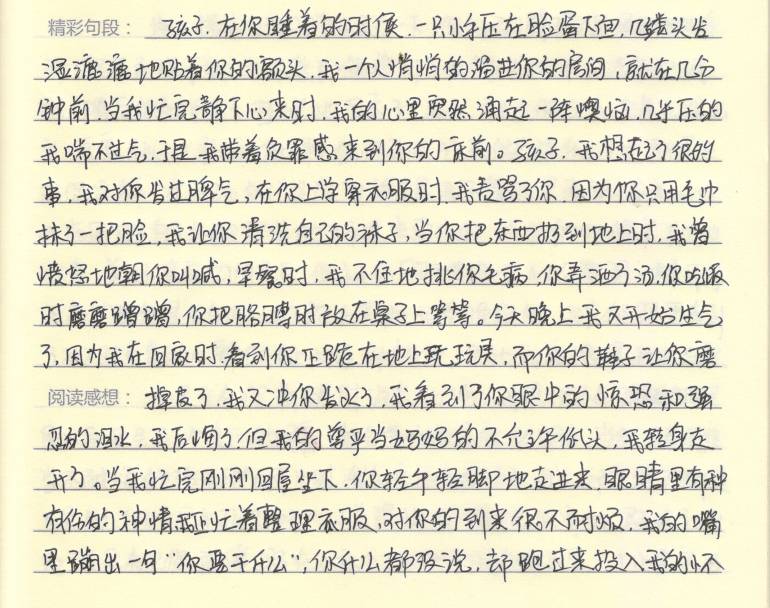 精彩句段： 孩子，在你睡着的时候，一只小手压在脸蛋下面，几缕头发
湿漉漉地贴着你的额头，我一个人悄悄的溜进你的房间，就在几分
钟前，当我忙完静下心来时，我的心里突然涌起一阵懊恼，几乎压的
我喘不过气，于是我带着负罪感来到你的床前。孩子，我想起了很的
事，我对你发过脾气，在你上学穿衣服时，我责骂了你，因为你只用毛巾
抹了一把脸，我让你清洗自己的袜子，当你把东西扔到地上时，我曾
愤怒地朝你叫喊，早餐时，我不住地挑你毛病，你弄洒了汤，你吃饭
时磨磨蹭蹭，你把胳膊肘放在桌子上等等。今天晚上我又开始生气
了，因为我在回家时，看到你正跪在地上玩玩具，而你的鞋子让你磨
阅读感想： 掉皮了，我又冲你发火了，我看到了你眼中的惊恐和强
忍的泪水，我后悔了，但我的尊严当妈妈的不允许低头，我转身走
开了。当我忙完刚刚回屋坐下，你轻手轻脚地走进来，眼睛里有种
有伤的神情我正忙着整理衣服，对你的到来很不耐烦，我的嘴
里蹦出一句“你要干什么”，你什么都没说，却跑过来投入我的怀